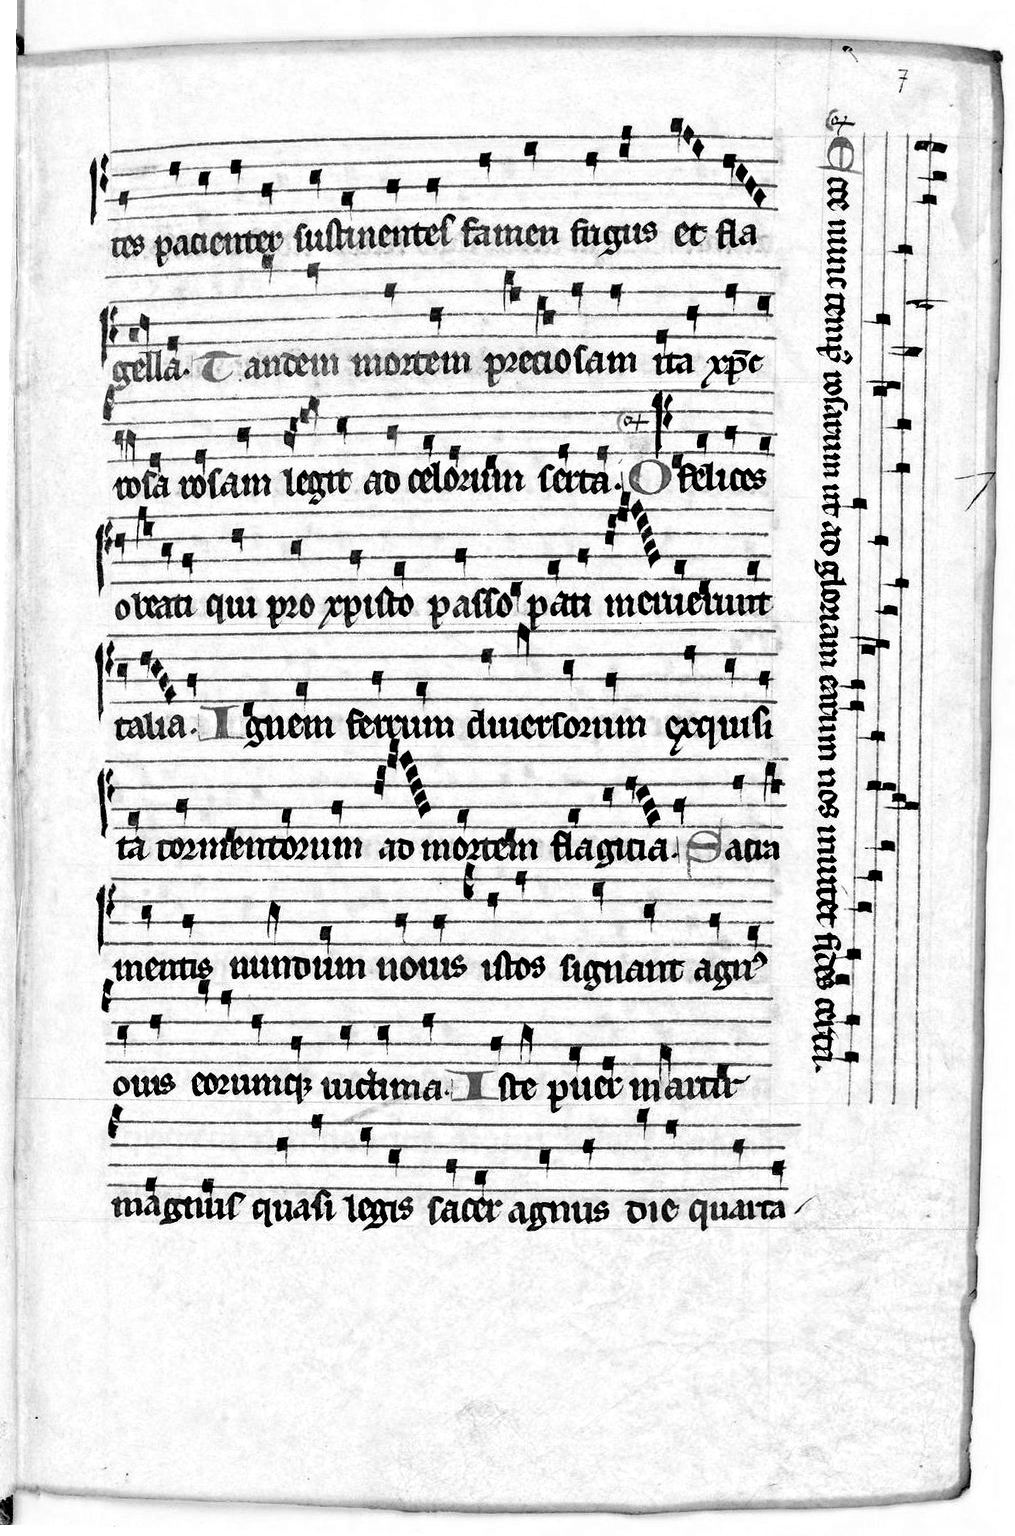 7
tes pacienter sustinentes famen frigus et fla
gella. Tandem mortem preciosam ita xp̄c
rosa rosam legit ad celorum serta. O felices
obeati qui pro xpisto passoꝰ pati meruerunt
talia. Ignem ferrum diuersorum exquisi
ta tormentorum ad mortem flagicia. Sacia
mentis nundum nouis istos signant agnꝰ
ouis eorumqꝫ uictima. Iste puer martir
magnus quasi legis sacer agnus die quarta
Ecce nunc tempꝰ rosarum ut ad gloriam earum nos inuitet fides certa.